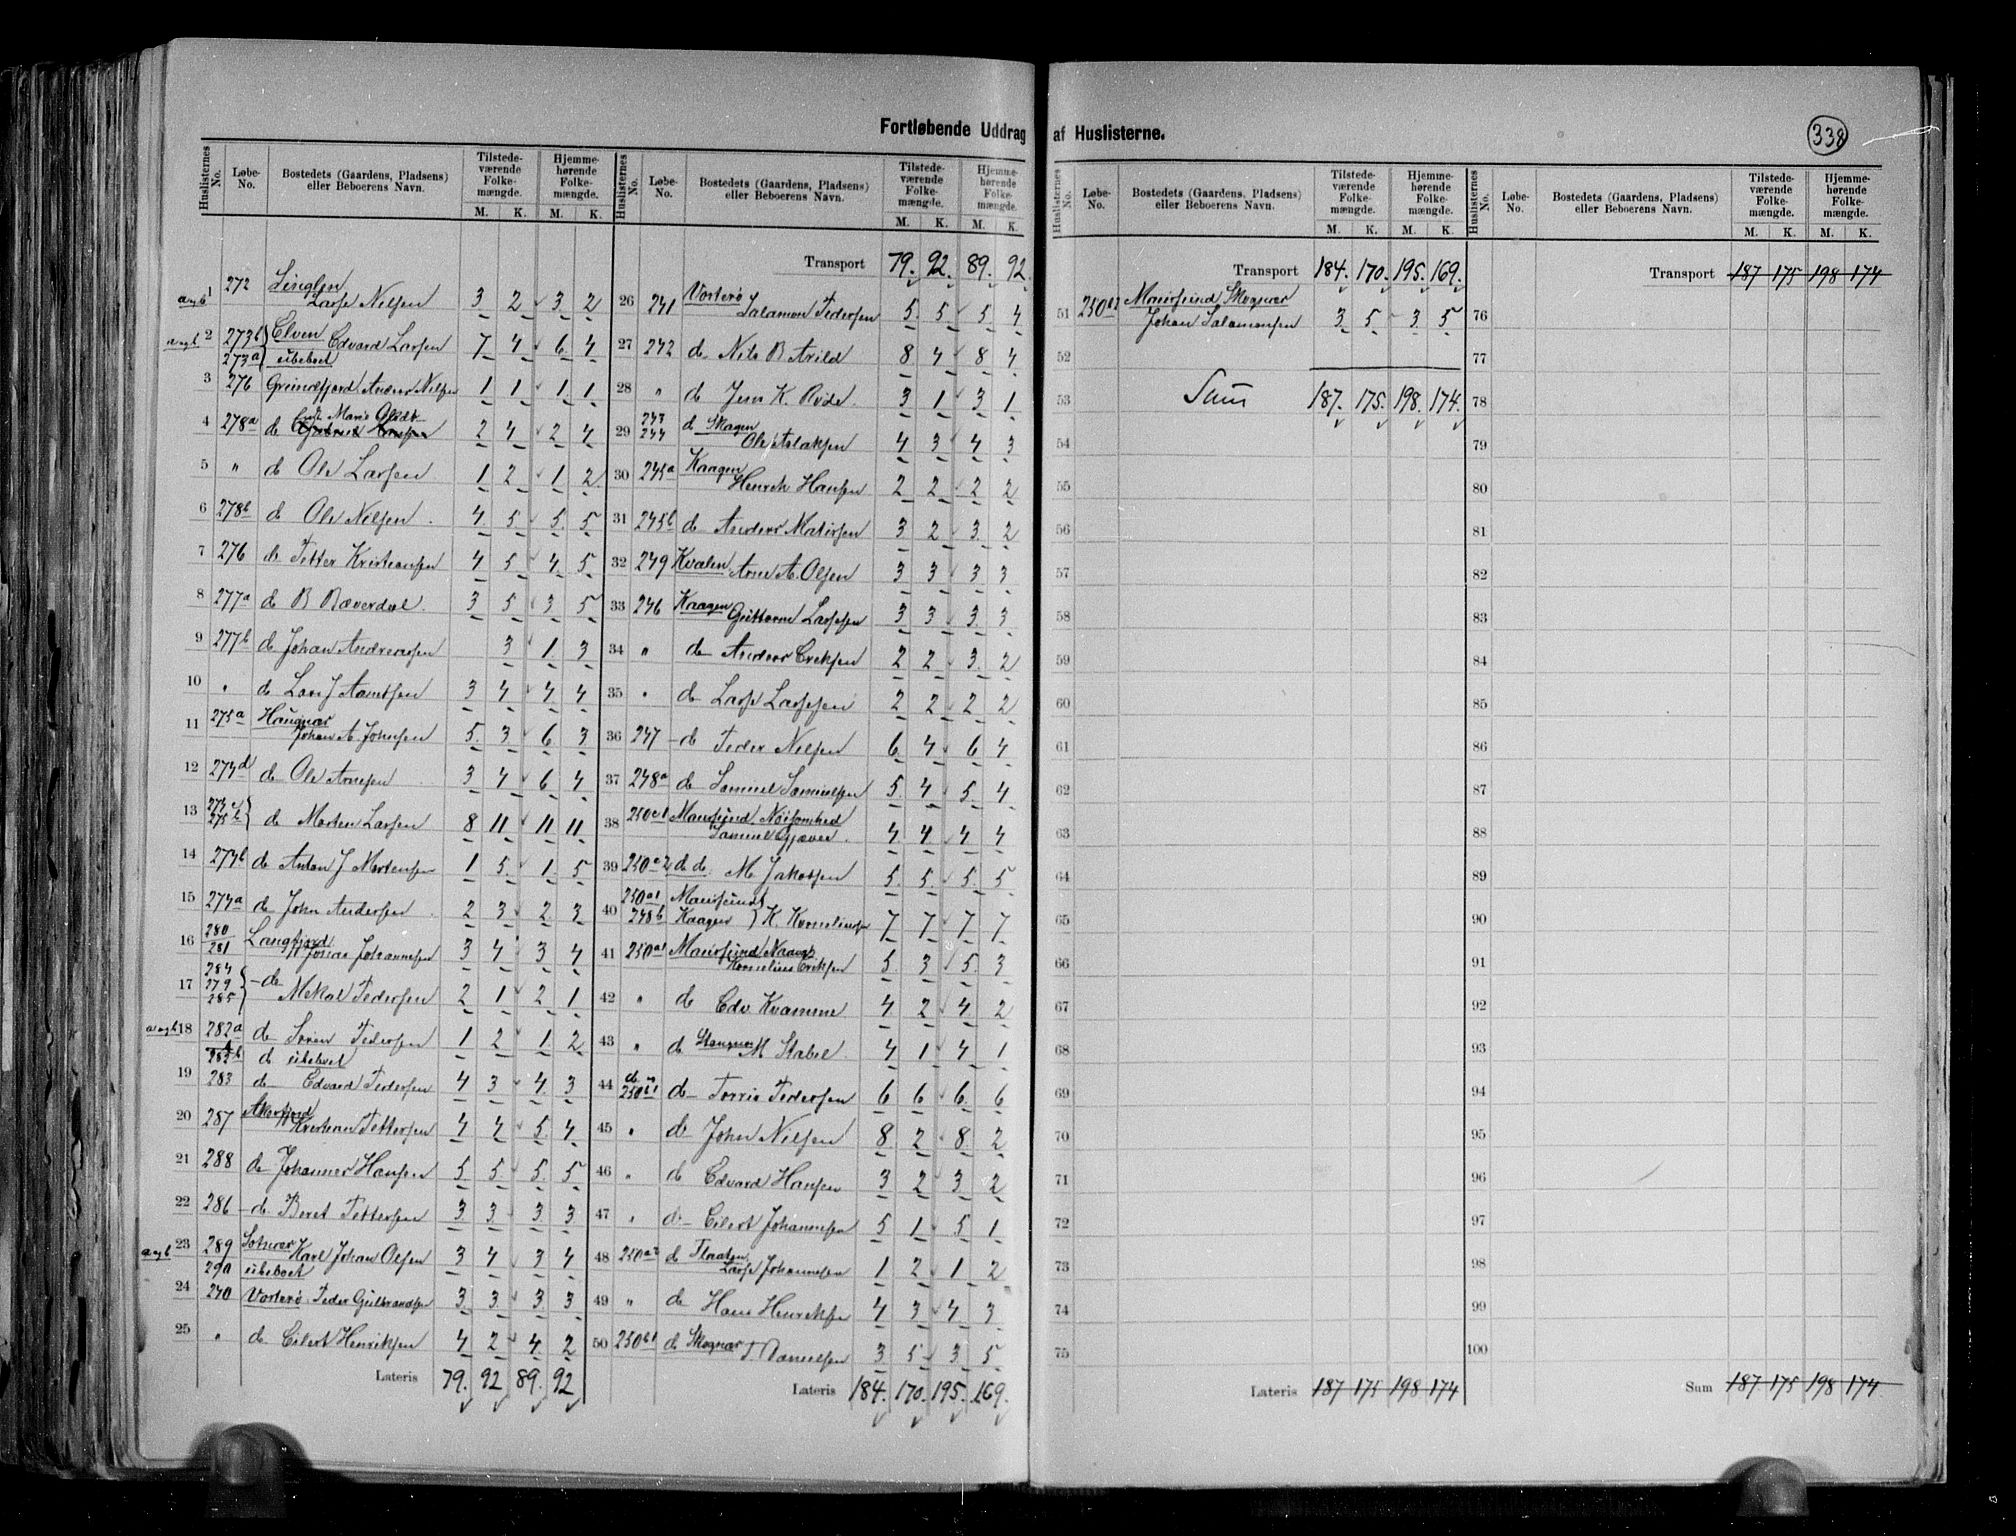 Fortløbende Uddrag af Huslisterne.
338
Huslisternes No. Løbe-No. Bostedets (Gaardens, Pladsens) eller Beboerens Navn. Tilstedeværende Folkemængde. M. K. Hjemmehørende Folkemængde. M. K.
1 272
Larsx Nilsen 3 2 3 2
2 273b Elven Edvard Larsen 7 4 6 4
273a ubeboet
3 276 Andreas Nilsen 1 1 1 1
4 278a do 2 4 2 4
5 " do Ole Larsen 1 2 1 2
6 278b do Ole Nilsen 4 5 5 5
7 276 do Petter Kristiansen 4 5 4 5
8 277a do B Bæverdal 3 5 3 5
9 277b do Johan Andreassen 3 1 3
10 " do Lars J Arntsen 3 4 4 4
11 275a Haugnæs
Johan A. Johnsen 5 3 6 3
12 274d do Ole Arnesen 3 4 6 4
13 275b do Morten Larsen 8 11 11 11
14 274b do Anton J Mortensen 1 5 1 5
15 274a do John Andersen 2 3 2 3
16 280 281 Langfjord
Johannesen 3 4 3 4
17 284 279 285 do
Mikal Pedersen 2 1 2 1
18 282a do Sören Pedersen 1 2 1 2
282b do ubeboet
19 283 do Edvard Pedersen 4 3 4 3
20 287 Akerfjord
Kristian Pettersen 4 4 5 4
21 288 do Johannes Hansen 5 5 5 5
22 286 do Beret Pettersen 3 3 3 3
23 289 Karl Johan Olsen 3 4 3 4
290 ubeboet
24 240 Vorterö Peder Gulbrandsen 3 3 3 3
25 " do Eilert Henriksen 4 2 4 2
Lateris 79. 92 89. 92
Huslisternes No. Løbe-No. Bostedets (Gaardens, Pladsens) eller Beboerens Navn. Tilstedeværende Folkemængde. M. K. Hjemmehørende Folkemængde. M. K.
Transport 79. 92. 89. 92.
26 241 Vorterö
Salamon Pedersen 5 5 5 4
27 242 do Nils B Arild 8 4 8 4
28 " do Jens K. 3 1 3 1
29 243 244 do Skagen
Ole Aslaksen 4 3 4 3
30 245a Kaagen
Henrik Hansen 2 2 2 2
31 245b do Anders Matisen 3 2 3 2
32 249 Kvalen Arne A. Olsen 3 3 3 3
33 246 Kaagen Guttorm Larssen 3 3 3 3
34 " do Anders Eriksen 2 2 3 2
35 " do Lars Larssen 2 2 2 2
36 247 do Peder Nilsen 6 4 6 4
37 248a do Samuel Samuelsen 5 4 5 4
38 250c1 Maursund Nøisomhed
Samuel Gjæver 4 4 4 4
39 250c2 do do. M. Jakobsen 5 5 5 5
40 250a1 Maursund
248b Kaagen K. Korneliussen 7 7 7 7
41 250a1 Maursund
Kornelius Eriksen 5 3 5 3
42 " do Edv Kvamme 4 2 4 2
43 " do M Stabel 4 1 4 1
44 do 250b1 do Torris Pedersen 6 6 6 6
45 " do John Nilsen 8 2 8 2
46 " do Edvard Hansen 3 2 3 2
47 " do Eilert Johannesen 5 1 5 1
48 250a2 do Flaaten
Lars Johannesen 1 2 1 2
49 " do Hans Henriksen 4 3 4 3
50 250b1 do Skognæs
Danielsen 3 5 3 5
Lateris 184. 170. 195. 169.
Huslisternes No. Løbe-No. Bostedets (Gaardens, Pladsens) eller Beboerens Navn. Tilstedeværende Folkemængde. M. K. Hjemmehørende Folkemængde. M. K.
Transport 184. 170. 195. 169.
51 250b2 Maursund Skognæs
Johan Salamonsen 3 5 3 5
52
53 Sum 187. 175. 198. 174.
54
55
56
57
58
59
60
61
62
63
64
65
66
67
68
69
70
71
72
73
74
75
Lateris 187 175 198 174
Huslisternes No. Løbe-No. Bostedets (Gaardens, Pladsens) eller Beboerens Navn. Tilstedeværende Folkemængde. M. K. Hjemmehørende Folkemængde. M. K.
Transport 187 175 198 174
76
77
78
79
80
81
82
83
84
85
86
87
88
89
90
91
92
93
94
95
96
97
98
99
100
Sum 187 175 198 174